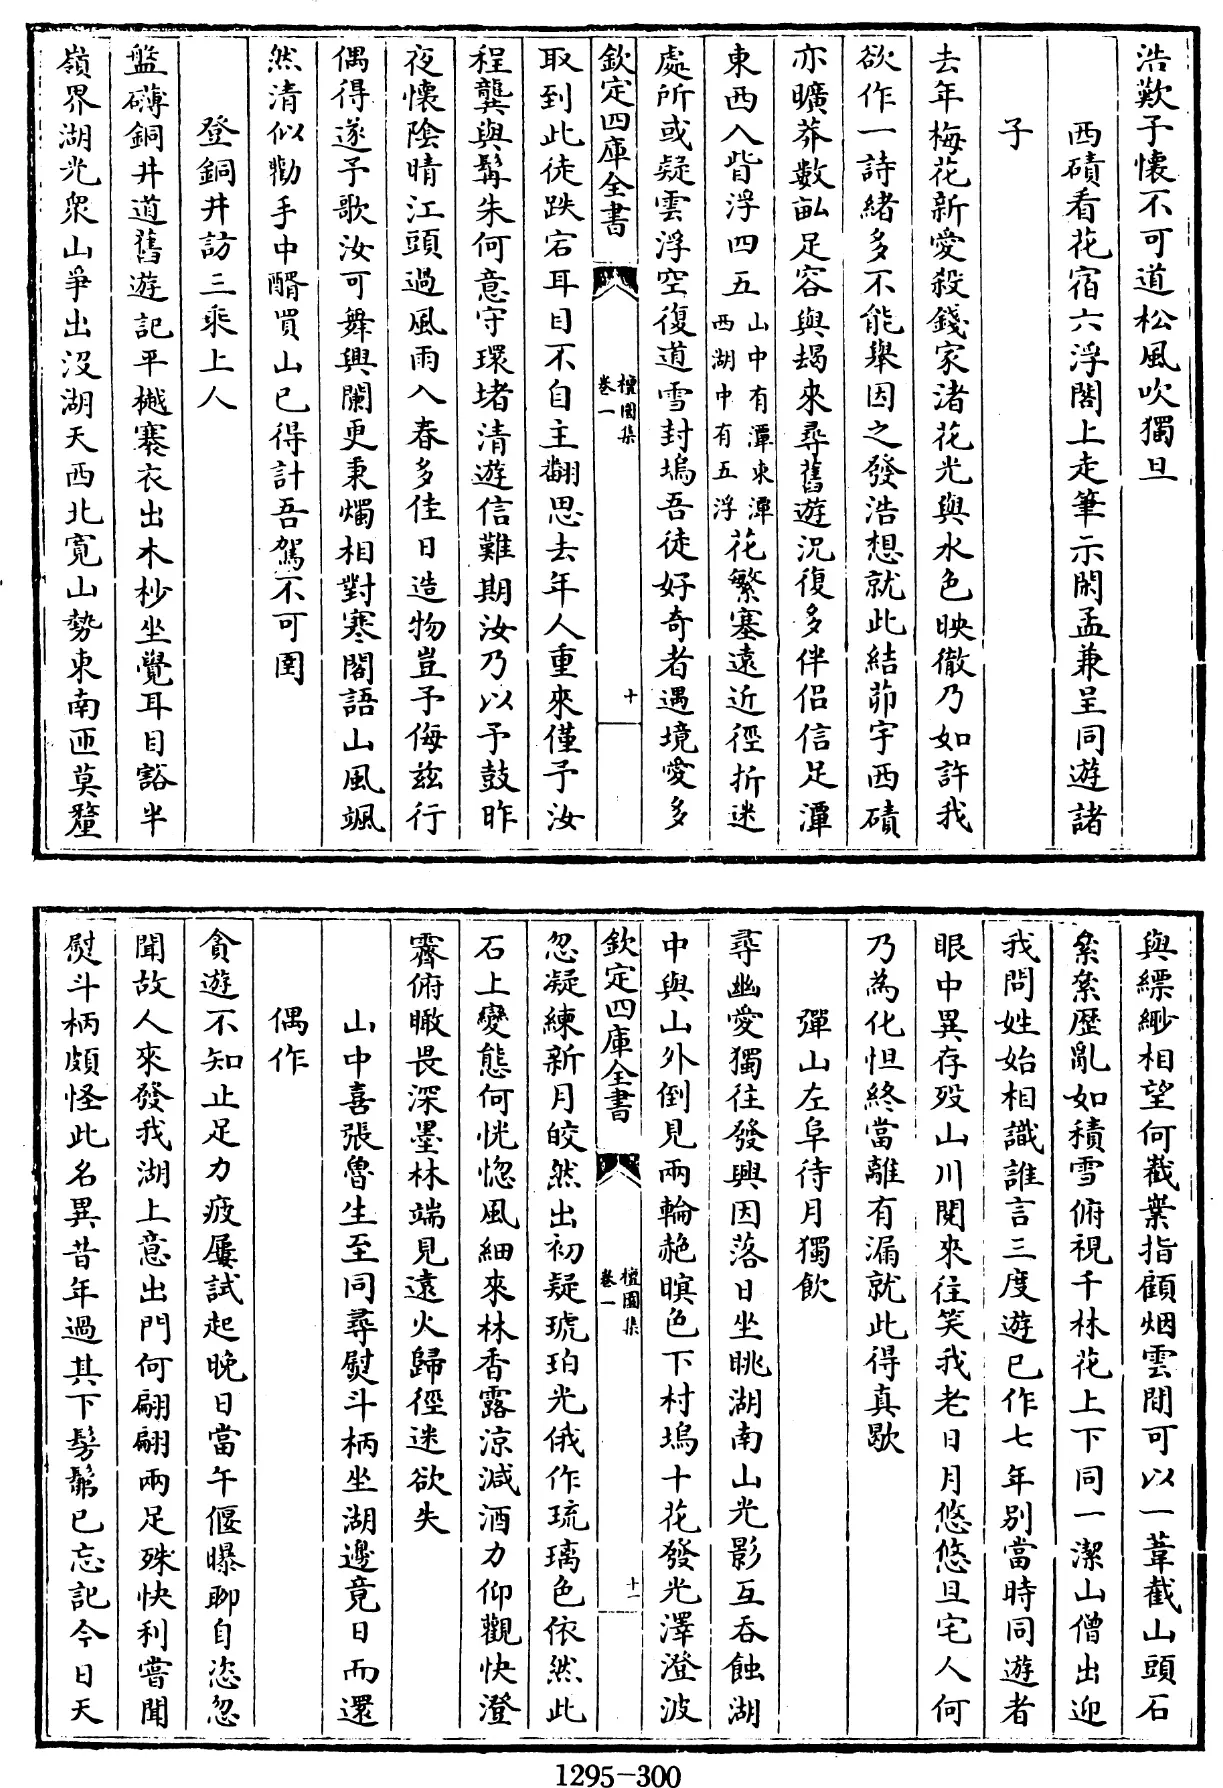 浩歎予懷不可道松風吹獨旦
西磧看花宿六浮閣上走筆示閑孟兼呈同遊諸
子
去年梅花新愛殺錢家渚花光與水色映徹乃如許我
欲作一詩緒多不能舉因之發浩想就此結茆宇西磧
亦曠莽數畆足容與朅來尋舊遊況復多伴侣信足潭
東西入眥浮四五
山中有潭東潭
西湖中有五浮
花繁塞遠近徑折迷
處所或疑雲浮空復道雪封塢吾徒好奇者遇境愛多
欽定四庫全書
檀園集
卷一
十
取到此徒跌宕耳目不自主翻思去年人重來僅予汝
程龔與髯朱何意守環堵清遊信難期汝乃以予鼓昨
夜懷陰晴江頭過風雨入春多佳日造物豈予侮兹行
偶得遂予歌汝可舞興闌更秉燭相對寒閣語山風颯
然清似勸手中醑買山已得計吾駕不可圉
登銅井訪三乘上人
盤礴銅井道舊遊記平樾褰衣出木杪坐覺耳目豁半
嶺界湖光衆山爭出沒湖天西北寛山勢東南匝莫釐
與縹緲相望何巀嶪指顧烟雲間可以一葦截山頭石
纍纍歷亂如積雪俯視千林花上下同一潔山僧出迎
我問姓始相識誰言三度遊已作七年别當時同遊者
眼中異存殁山川閱來往笑我老日月悠悠旦宅人何
乃為化怛終當離有漏就此得真歇
彈山左阜待月獨飲
尋幽愛獨往發興因落日坐眺湖南山光影互吞蝕湖
中與山外倒見兩輪赩暝色下村塢十花發光澤澄波
欽定四庫全書
檀園集
卷一
十一
忽凝練新月皎然出初疑琥珀光俄作琉璃色依然此
石上變態何恍惚風細來林香露涼減酒力仰觀快澄
霽俯瞰畏深墨林端見遠火歸徑迷欲失
山中喜張魯生至同尋熨斗柄坐湖邊竟日而還
偶作
貪遊不知止足力疲屢試起晚日當午偃曝聊自恣忽
聞故人來發我湖上意出門何翩翩兩足殊快利嘗聞
熨斗柄頗怪此名異昔年過其下髣髴已忘記今日天
1295-300